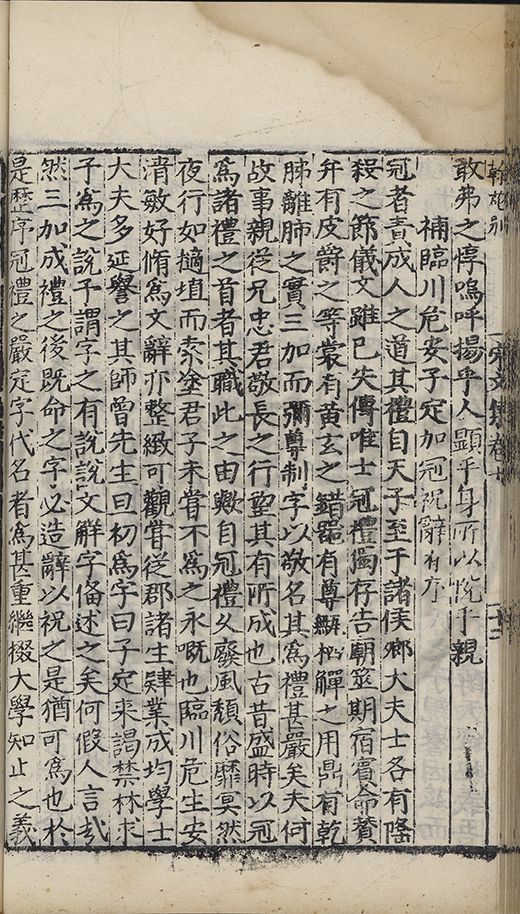 敢弗之惇嗚呼揚乎人顯乎身所以悅乎親
補臨川危安子定加冠祝辭有序
冠者責成人之道其禮自天子至于諸侯卿大夫士各有隆
殺之節儀文雖已失傳唯士冠禮獨存告廟筮期宿賓命賛
弁有皮爵之等裳有黃玄之錯器有尊觶柶觶之用鼎有乾
肺離肺之實三加而彌尊制字以敬名其爲禮甚嚴矣夫何
故事親從兄忠君敬長之行望其有所成也古昔盛時以冠
爲諸禮之首者其職此之由歟自冠禮久廢風頹俗靡冥然
夜行如擿埴而索塗君子未甞不爲之永嘅也臨川危生安
淯敏好脩爲文辭亦整緻可觀甞從郡諸生肄業成均學士
大夫多延譽之其師曾先生旦初爲字曰子定来謁禁林求
予爲之說予謂字之有說說文解字俻述之矣何假人言㢤
然三加成禮之後旣命之字必造辭以祝之是猶可爲也於
是歷序冠禮之嚴定字代名者爲甚重繼掇大學知止之義
宋文集卷十
十二